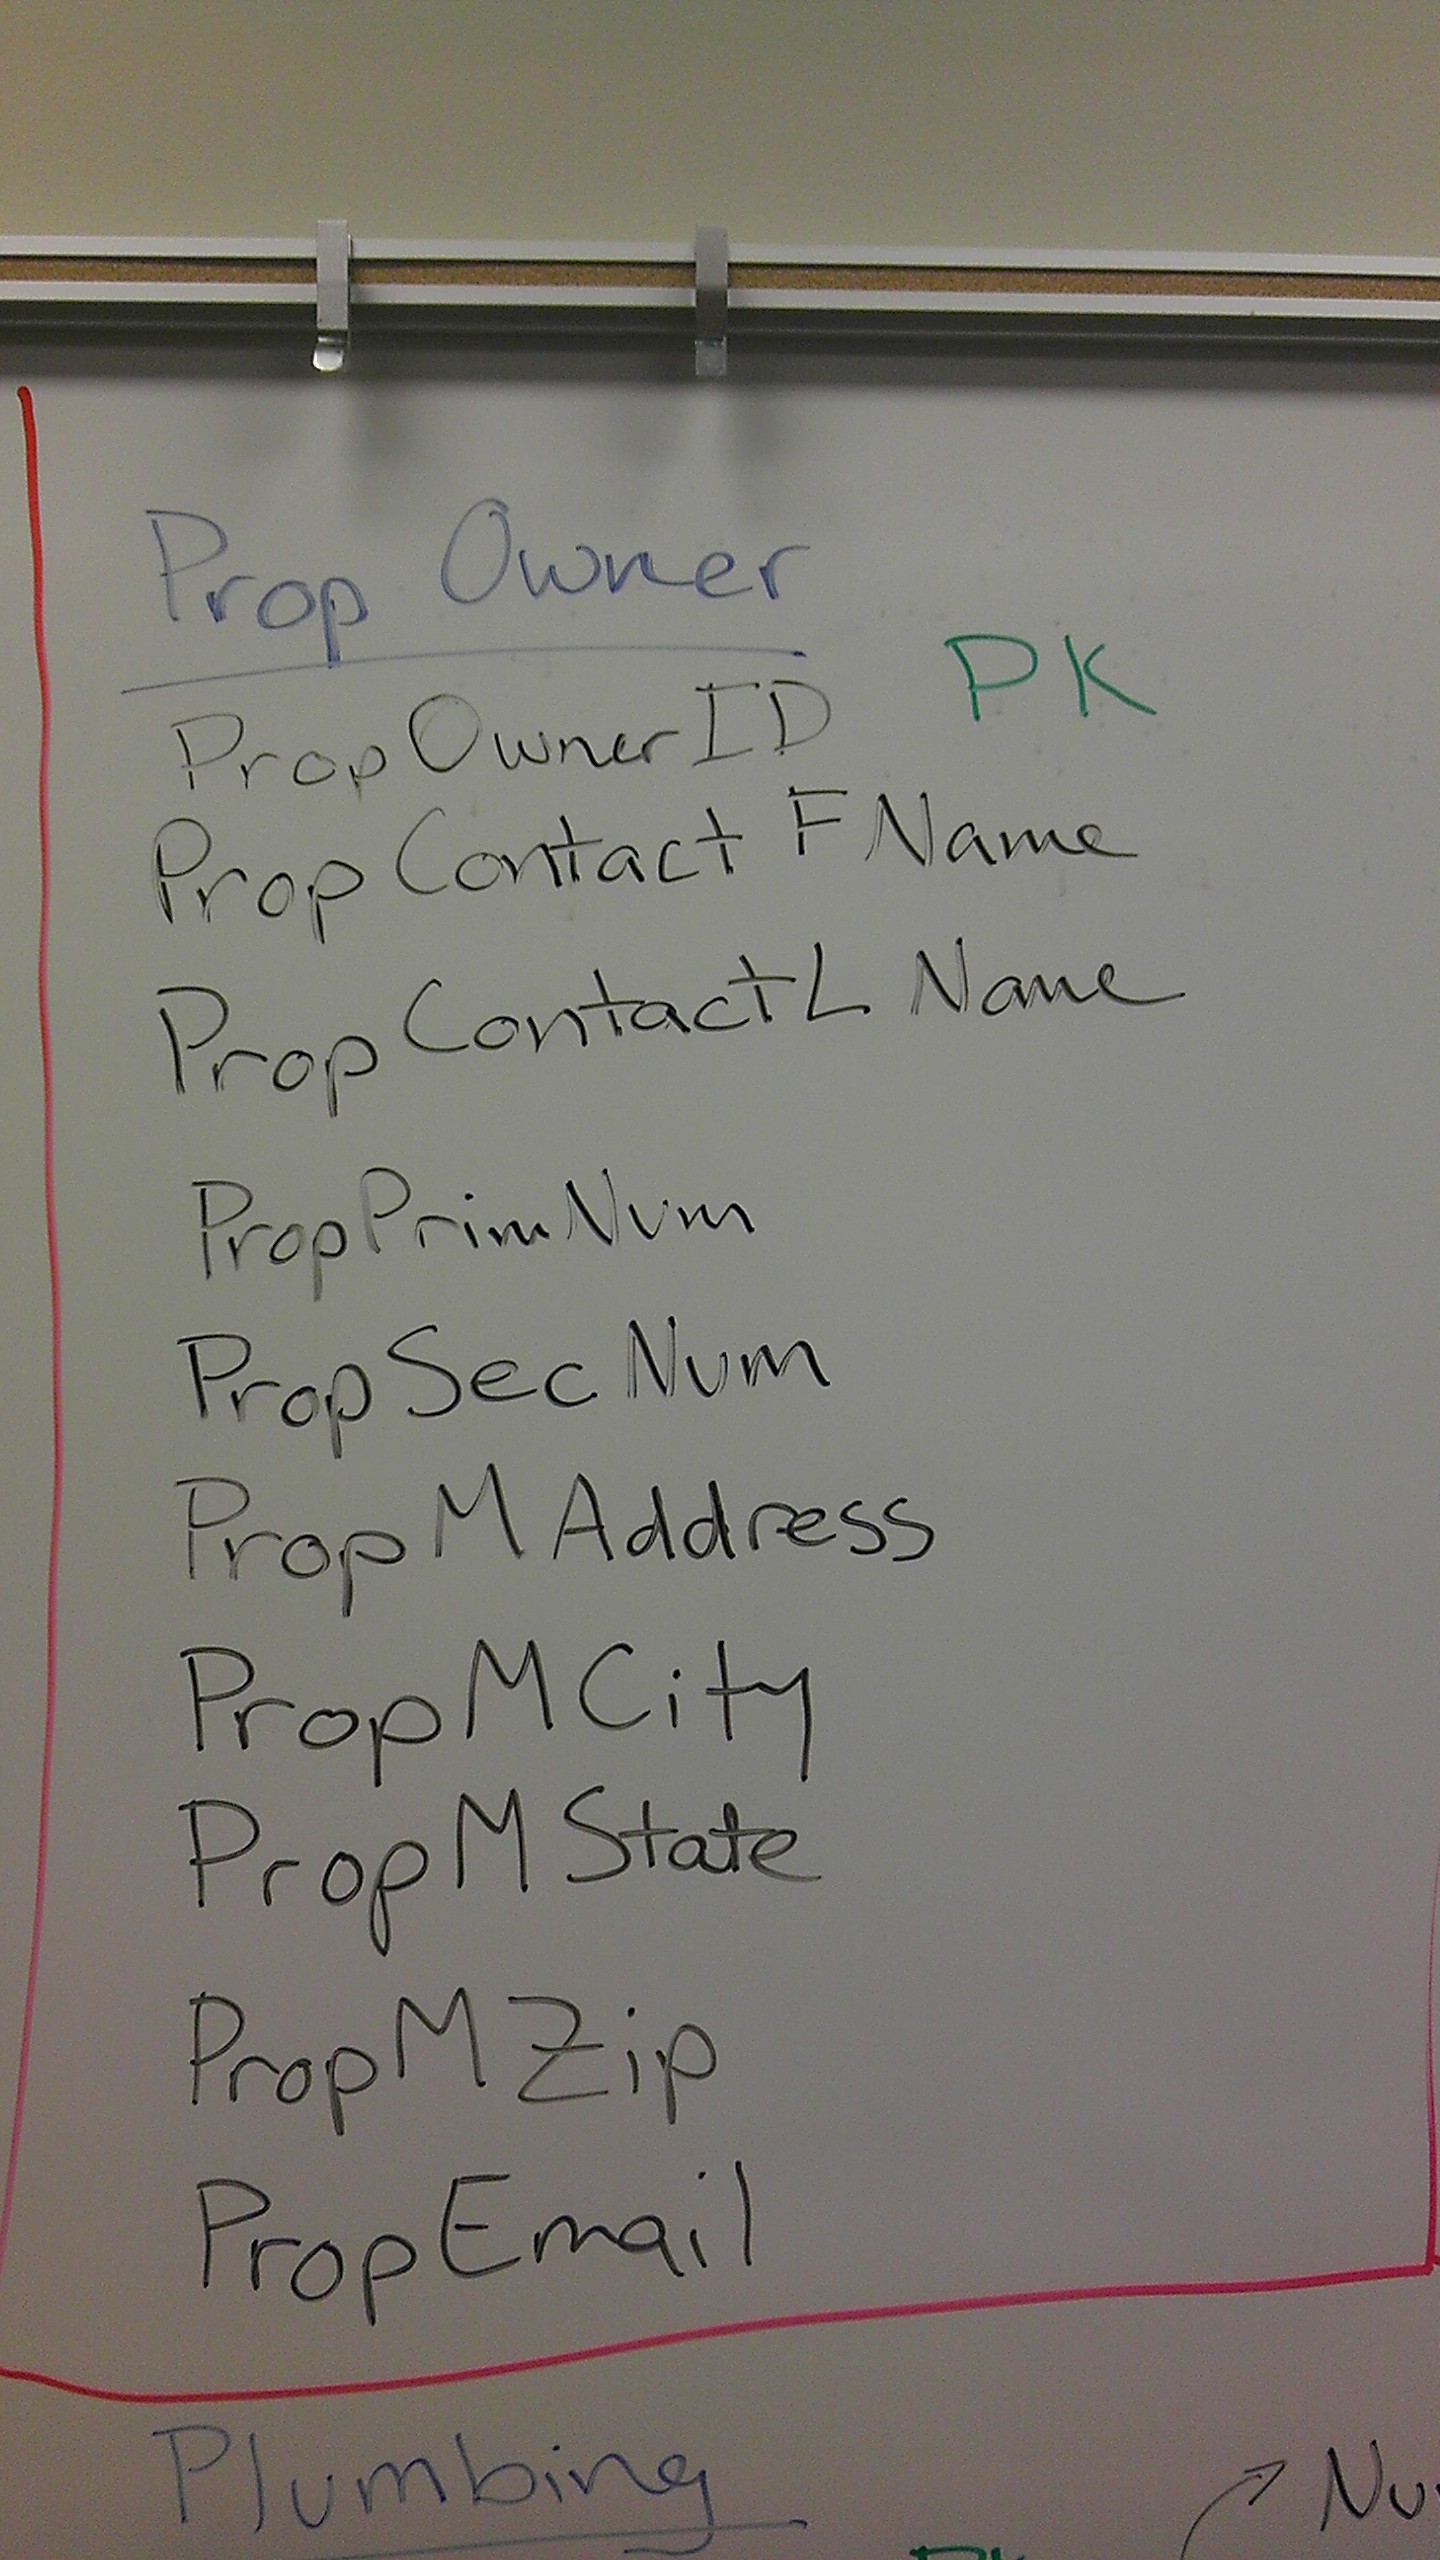 Prop Owner
PropOwnerID PK
PropContact FName
PropContactL Name
PropPrimNum
PropSecNum
PropMAddress
PropMCity
PropMState
PropMZip
PropEmail
Plumbing